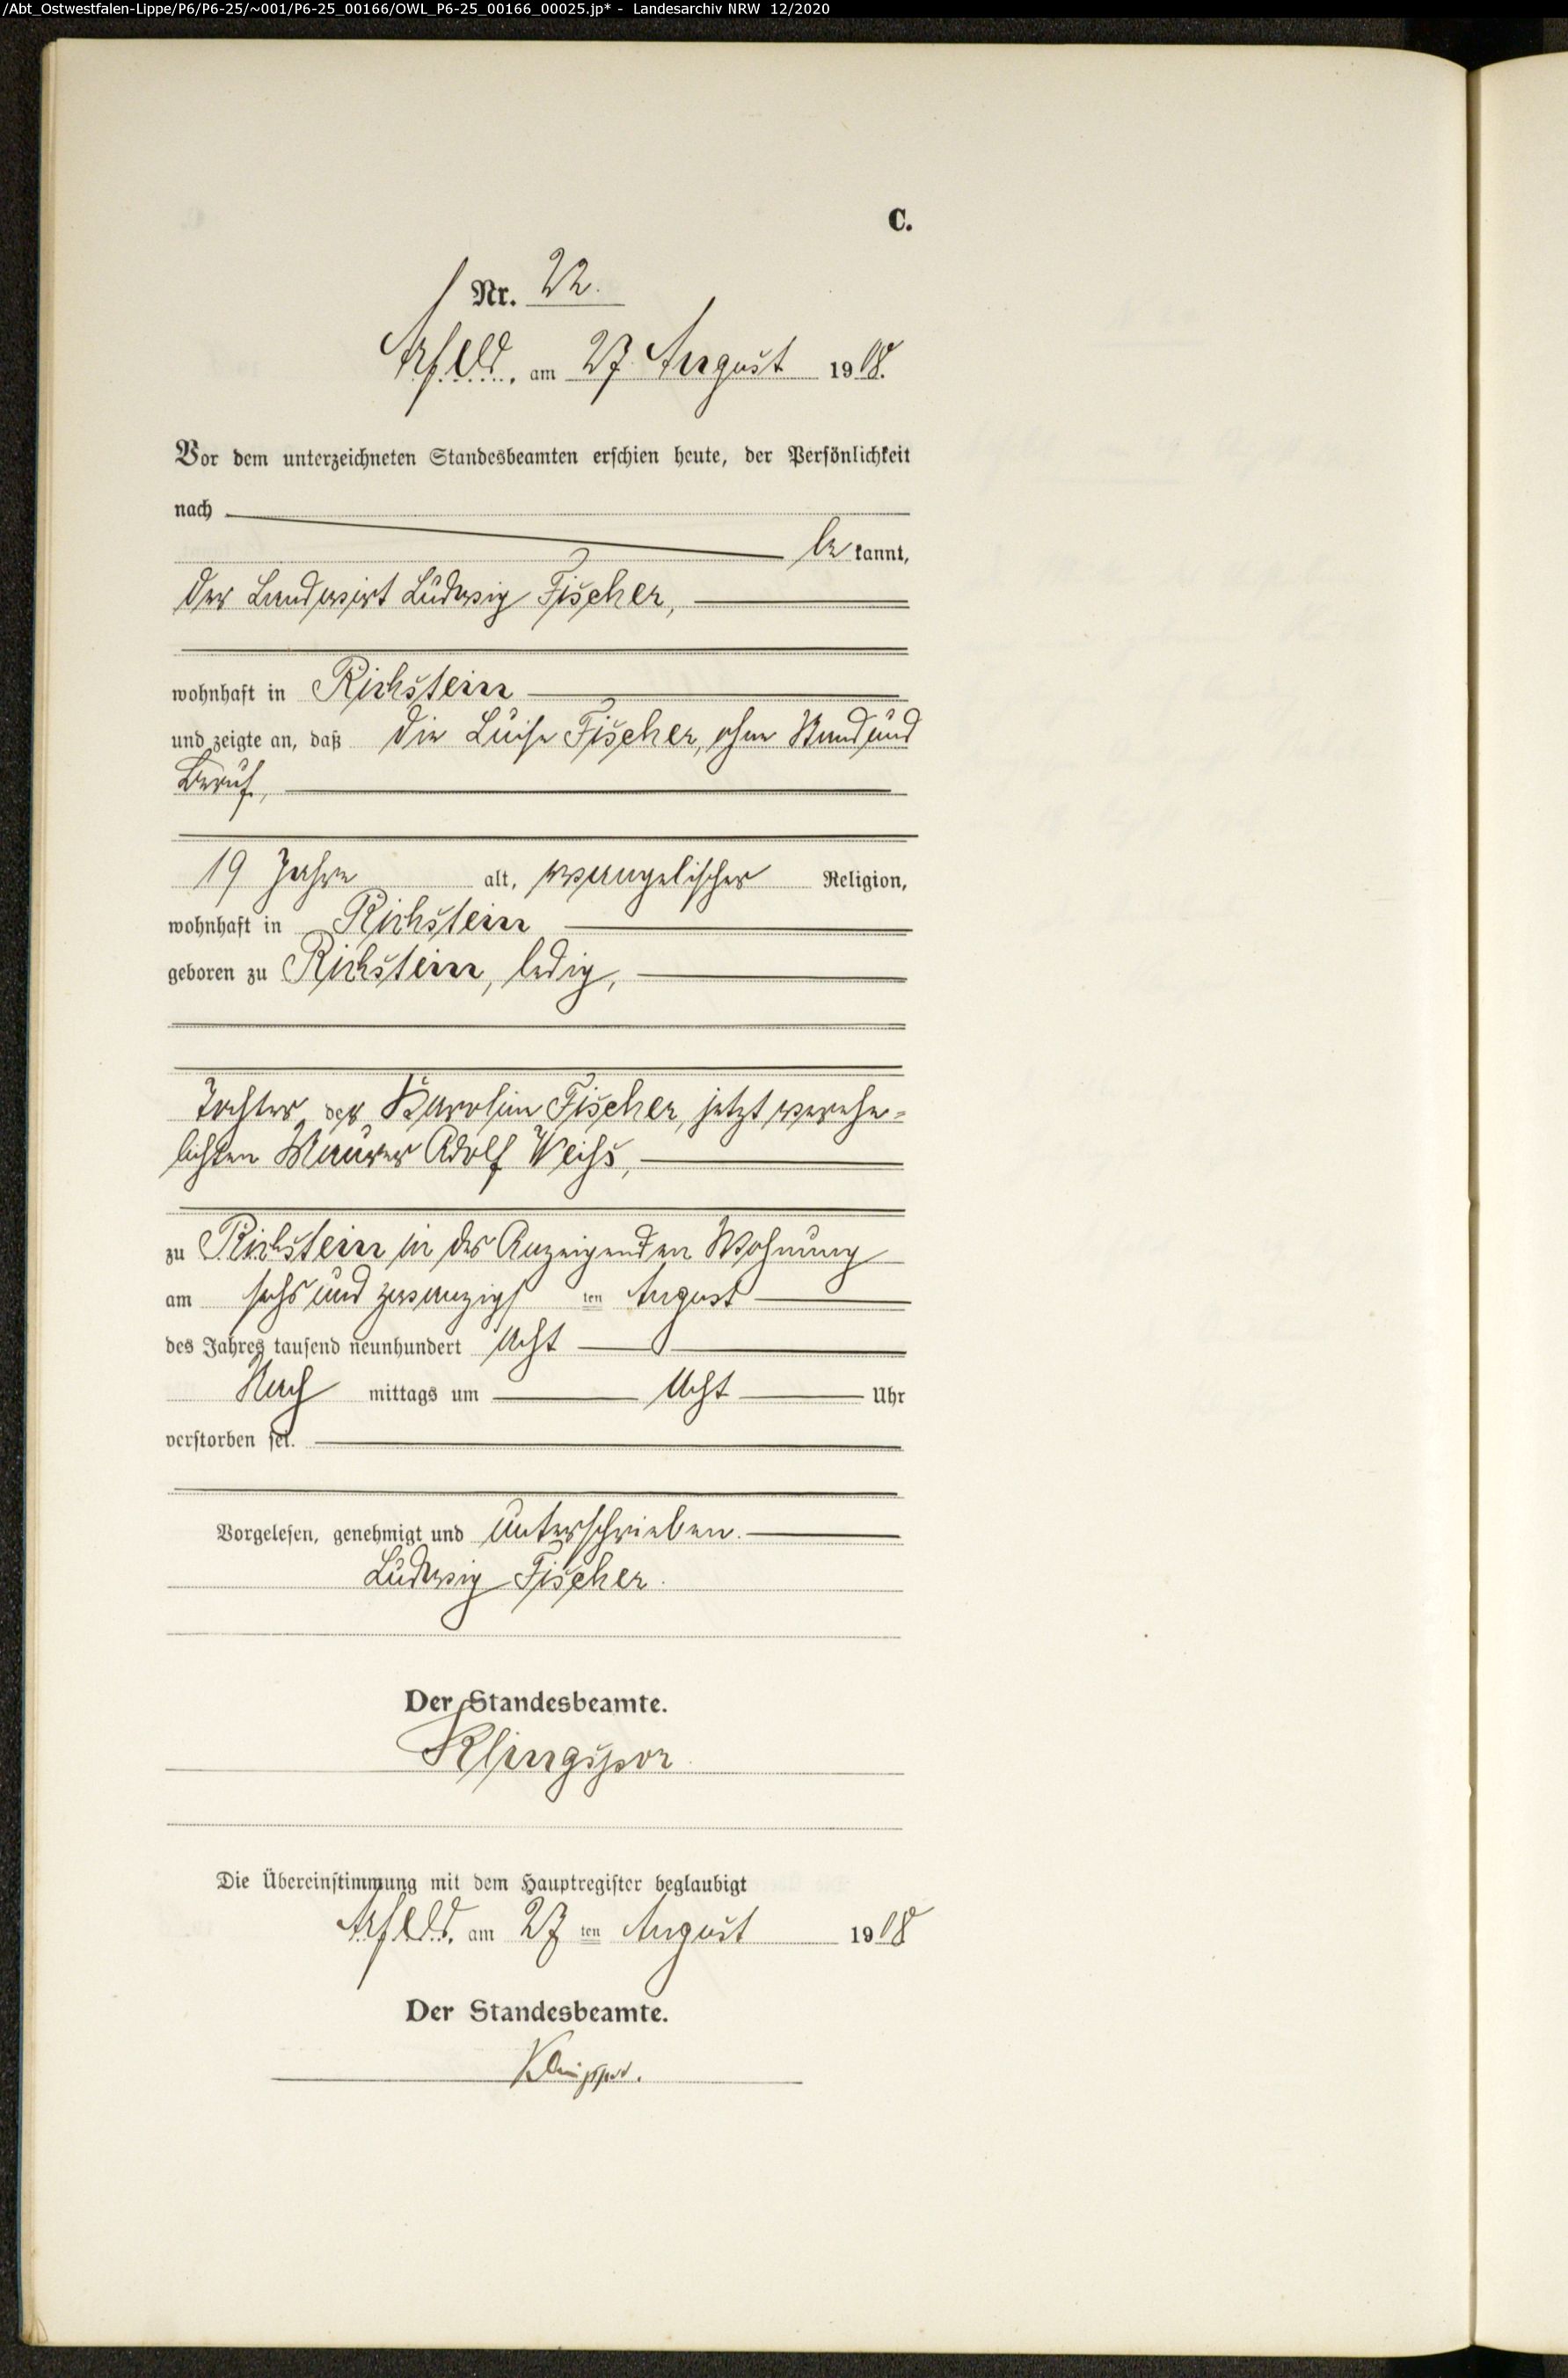 /Abt_Ostwestfalen-Lippe/P6/P6-25/~001/P6-25_00166/OWL_P6-25_00166_00025.jp* - Landesarchiv NRW 12/2020
C.
Nr. 22.
Arfeld, am 27. August 1908.
Vor dem unterzeichneten Standesbeamten erschien heute, der Persönlichkeit
nach
be kannt,
der Landwirt Ludwig Fischer,
wohnhaft in Richstein
und zeigte an, daß die Luise Fischer, ohne Stand und
Beruf,
19 Jahre alt, evangelischer Religion,
wohnhaft in Richstein
geboren zu Richstein, ledig,
Tochter der Karoline Fischer, jetzt verehe-
lichten Maurer Adolf Weiß,
zu Richstein in des Anzeigenden Wohnung
am sechs und zwanzigs ten August
des Jahres tausend neunhundert Acht
Nach mittags um Acht Uhr
verstorben sei.
Vorgelesen, genehmigt und unterschrieben.
Ludwig Fischer.
Der Standesbeamte.
Klingspor.
Die Übereinstimmung mit dem Hauptregister beglaubigt
Arfeld, am 27 ten August 1908
Der Standesbeamte.
Klingspor.